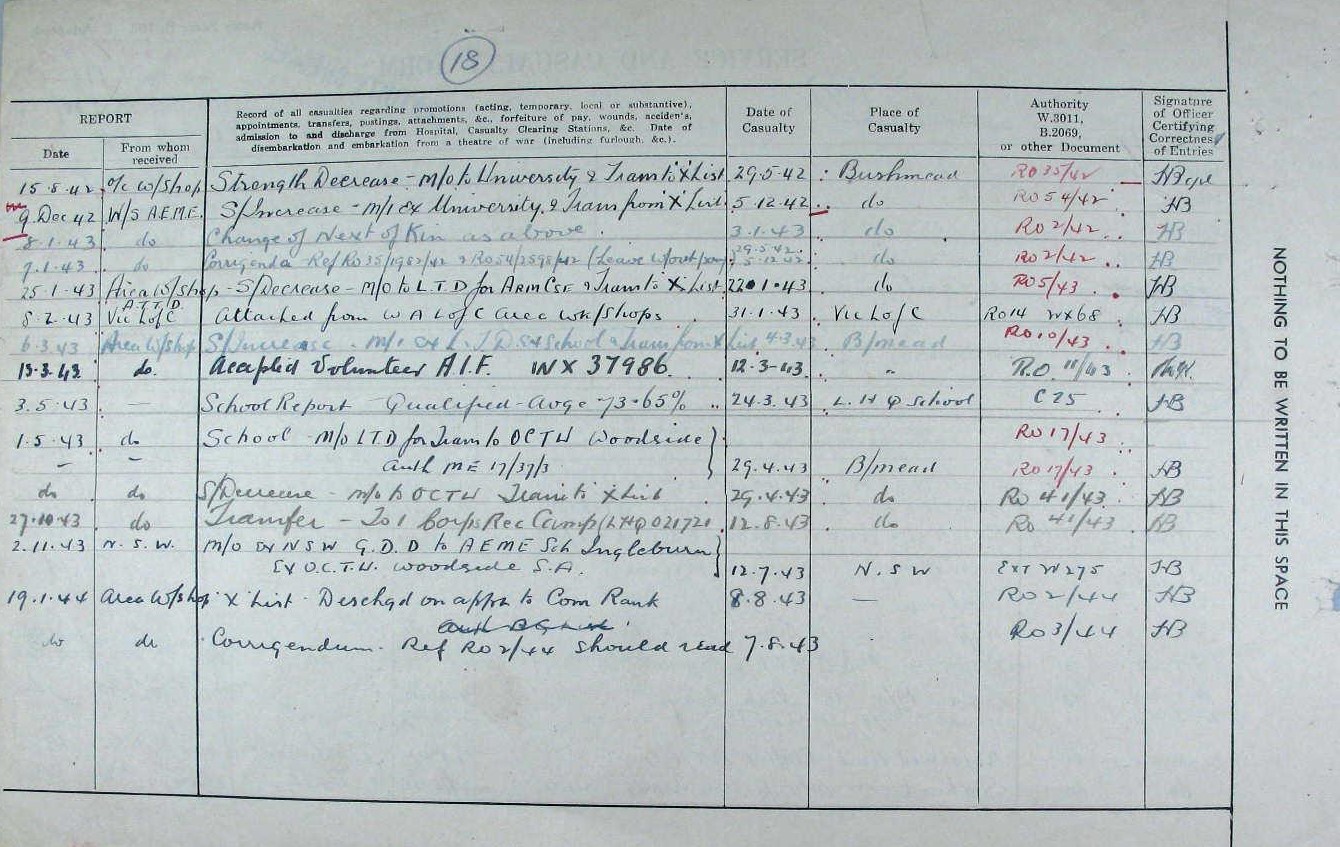 18
REPORT
Record of all casualties regarding promotions (acting, temporary, local or substantive), appointments, transfers, postings, attachments, &c., forfeiture of pay, wounds, acciden's, admission to and discharge from Hospital, Casualty Clearing Stations, &c. Date of disembarkation and embarkation from a theatre of war (including furlough, &c.).
Date of Casualty
Place of Casualty
Authority W.3011, B.2069, or other Document
Signature of Officer Certifying Correctness of Entries
Date From whom received
15.8.42 O/c W/Shop Strength Decrease - M/O to University & Trans to X List 29.5.42 Bushmead RO 35/42 HB
9. Dec 42 W/S A.E.M.E. S/Increase - M/I Ex University & Trans from X List 5.12.42 do RO 54/42 HB
8.1.43 do Change of Next of Kin as above 3.1.43 do RO 2/42 HB
7.1.43 do Corrigenda Ref RO 35/1982/42 & RO 54/2598/42 (Leave w/out pay) 29.5.42 5.12.42 do RO 2/42 HB
25.1.43 Area W/Shop S/Decrease - M/O to L.T.D for ARM CSE & Trans to X List 22.1.43 do RO 5/43 HB
8.2.43 Vic L of C Attached from W A L of C Area Wk/shops 31.1.43 Vic L of C RO 14 WX68 HB
6.3.43 Area W/Shop S/Increase - M/I Ex L.T.D. Ex School & Trans from X List 4.3.43 B/mead RO 10/43 HB
13.3.43 do. Accepted Volunteer A.I.F. WX 37986. 12-3-43 " R.O. 11/43
3.5.43 — School Report - Qualified - Avge 73.65% 24.3.43 L.H.Q School C 25 HB
1.5.43 do School - M/O LTD for Trans to OCTU Woodside RO 17/43
— — Auth ME 17/37/3 29.4.43 B/mead RO 17/43 HB
do do S/Decrease - M/O to OCTU Trans to X List 29.4.43 do RO 41/43 HB
27.10.43 do Transfer - To 1 Corps Rec Camp (LHQ 021721 12.8.43 do RO 41/43 HB
2.11.43 N.S.W. M/O Ex NSW G.D.D to AEME Sch Ingleburn
Ex O.C.T.U. Woodside S.A. 12.7.43 N.S.W Ext W275 HB
19.1.44 Area W/Shop X List - Deschgd on appn to Com Rank 8.8.43 — RO 2/44 HB
do do Corrigendum. Ref RO 2/44 should read 7.8.43 RO 3/44 HB
NOTHING TO BE WRITTEN IN THIS SPACE